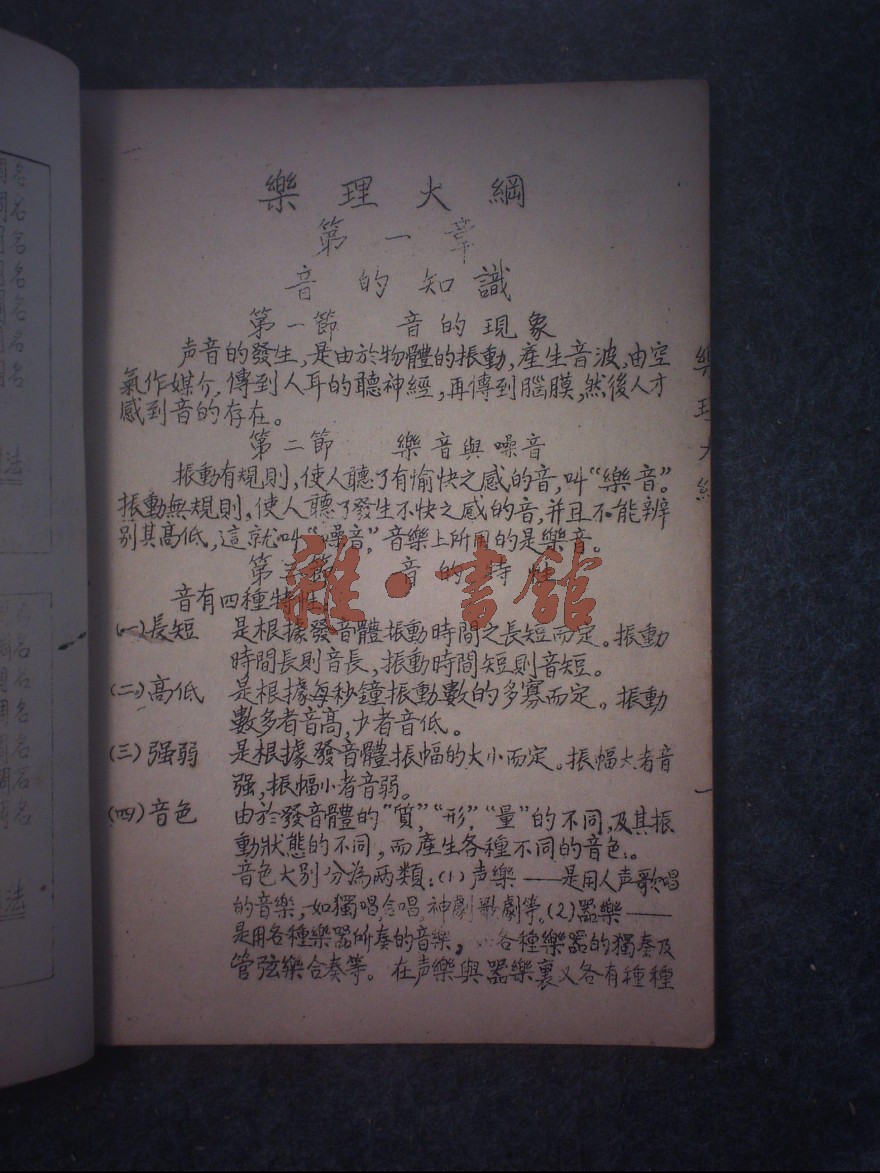 樂理大綱
第一章
音的知識
第一節 音的現象
声音的發生，是由於物體的振動，產生音波，由空
氣作媒介，傳到人耳的聽神經，再傳到腦膜，然後人才
感到音的存在。
第二節 樂音與噪音
振動有規則，使人聽了有愉快之感的音，叫“樂音”。
振動無規則，使人聽了發生不快之感的音，并且不能辨
别其高低，這就叫“噪音”，音樂上所用的是樂音。
第三節 音的特性
音有四種特性
(一)長短 是根據發音體振動時間之長短而定。振動
時間長則音長，振動時間短則音短。
(二)高低 是根據每秒鐘振動數的多寡而定。振動
數多者音高，少者音低。
(三)强弱 是根據發音體振幅的大小而定。振幅大者音
强，振幅小者音弱。
(四)音色 由於發音體的“質”，“形”，“量”的不同，及其振
動狀態的不同，而產生各種不同的音色。
音色大别分為兩類：(1)声樂——是用人声歌唱
的音樂，如獨唱，合唱，神劇歌劇等。(2)器樂——
是用各種樂器所奏的音樂，各種樂器的獨奏及
管弦樂合奏等。在声樂與器樂裏又各有種種
樂理大綱
一
雜·書館
名
名
名
名
名
名
法
名
名
名
名
名
名
法